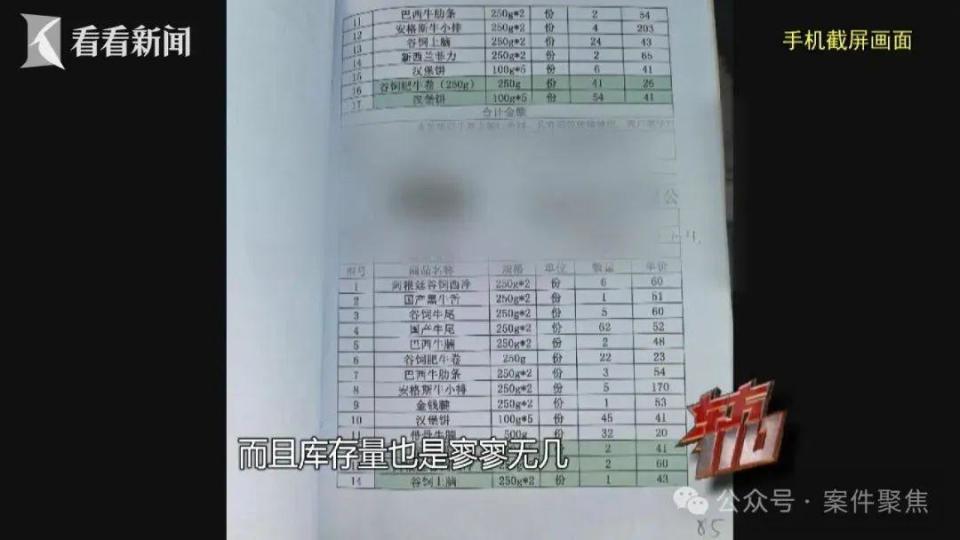 看看新闻
手机截屏画面
11 巴西牛肋条 250g*2 份 2 54
12 安格斯牛小排 250g*2 份 4 203
13 谷饲上脑 250g*2 份 24 43
14 新西兰菲力 250g*2 份 2 65
15 汉堡饼 100g*5 份 6 41
16 谷饲肥牛卷（250g） 250g 份 41 26
17 汉堡饼 100g*5 份 54 41
合计金额
商品名称 规格 单位 数量 单价
1 阿根廷谷饲西冷 250g*2 份 6 60
2 国产黑牛舌 250g*2 份 1 51
3 谷饲牛尾 250g*2 份 5 60
4 国产牛尾 250g*2 份 62 52
5 巴西牛腩 250g*2 份 2 48
6 谷饲肥牛卷 250g 份 22 23
7 巴西牛肋条 250g*2 份 3 54
8 安格斯牛小排 250g*2 份 5 170
9 金钱腱 250g*2 份 1 53
10 汉堡饼 100g*5 份 45 41
11 500g 份 32 20
2 41
2 60
14 谷饲上脑 250g*2 份 1 43
而且库存量也是寥寥无几
公众号·案件聚焦
85